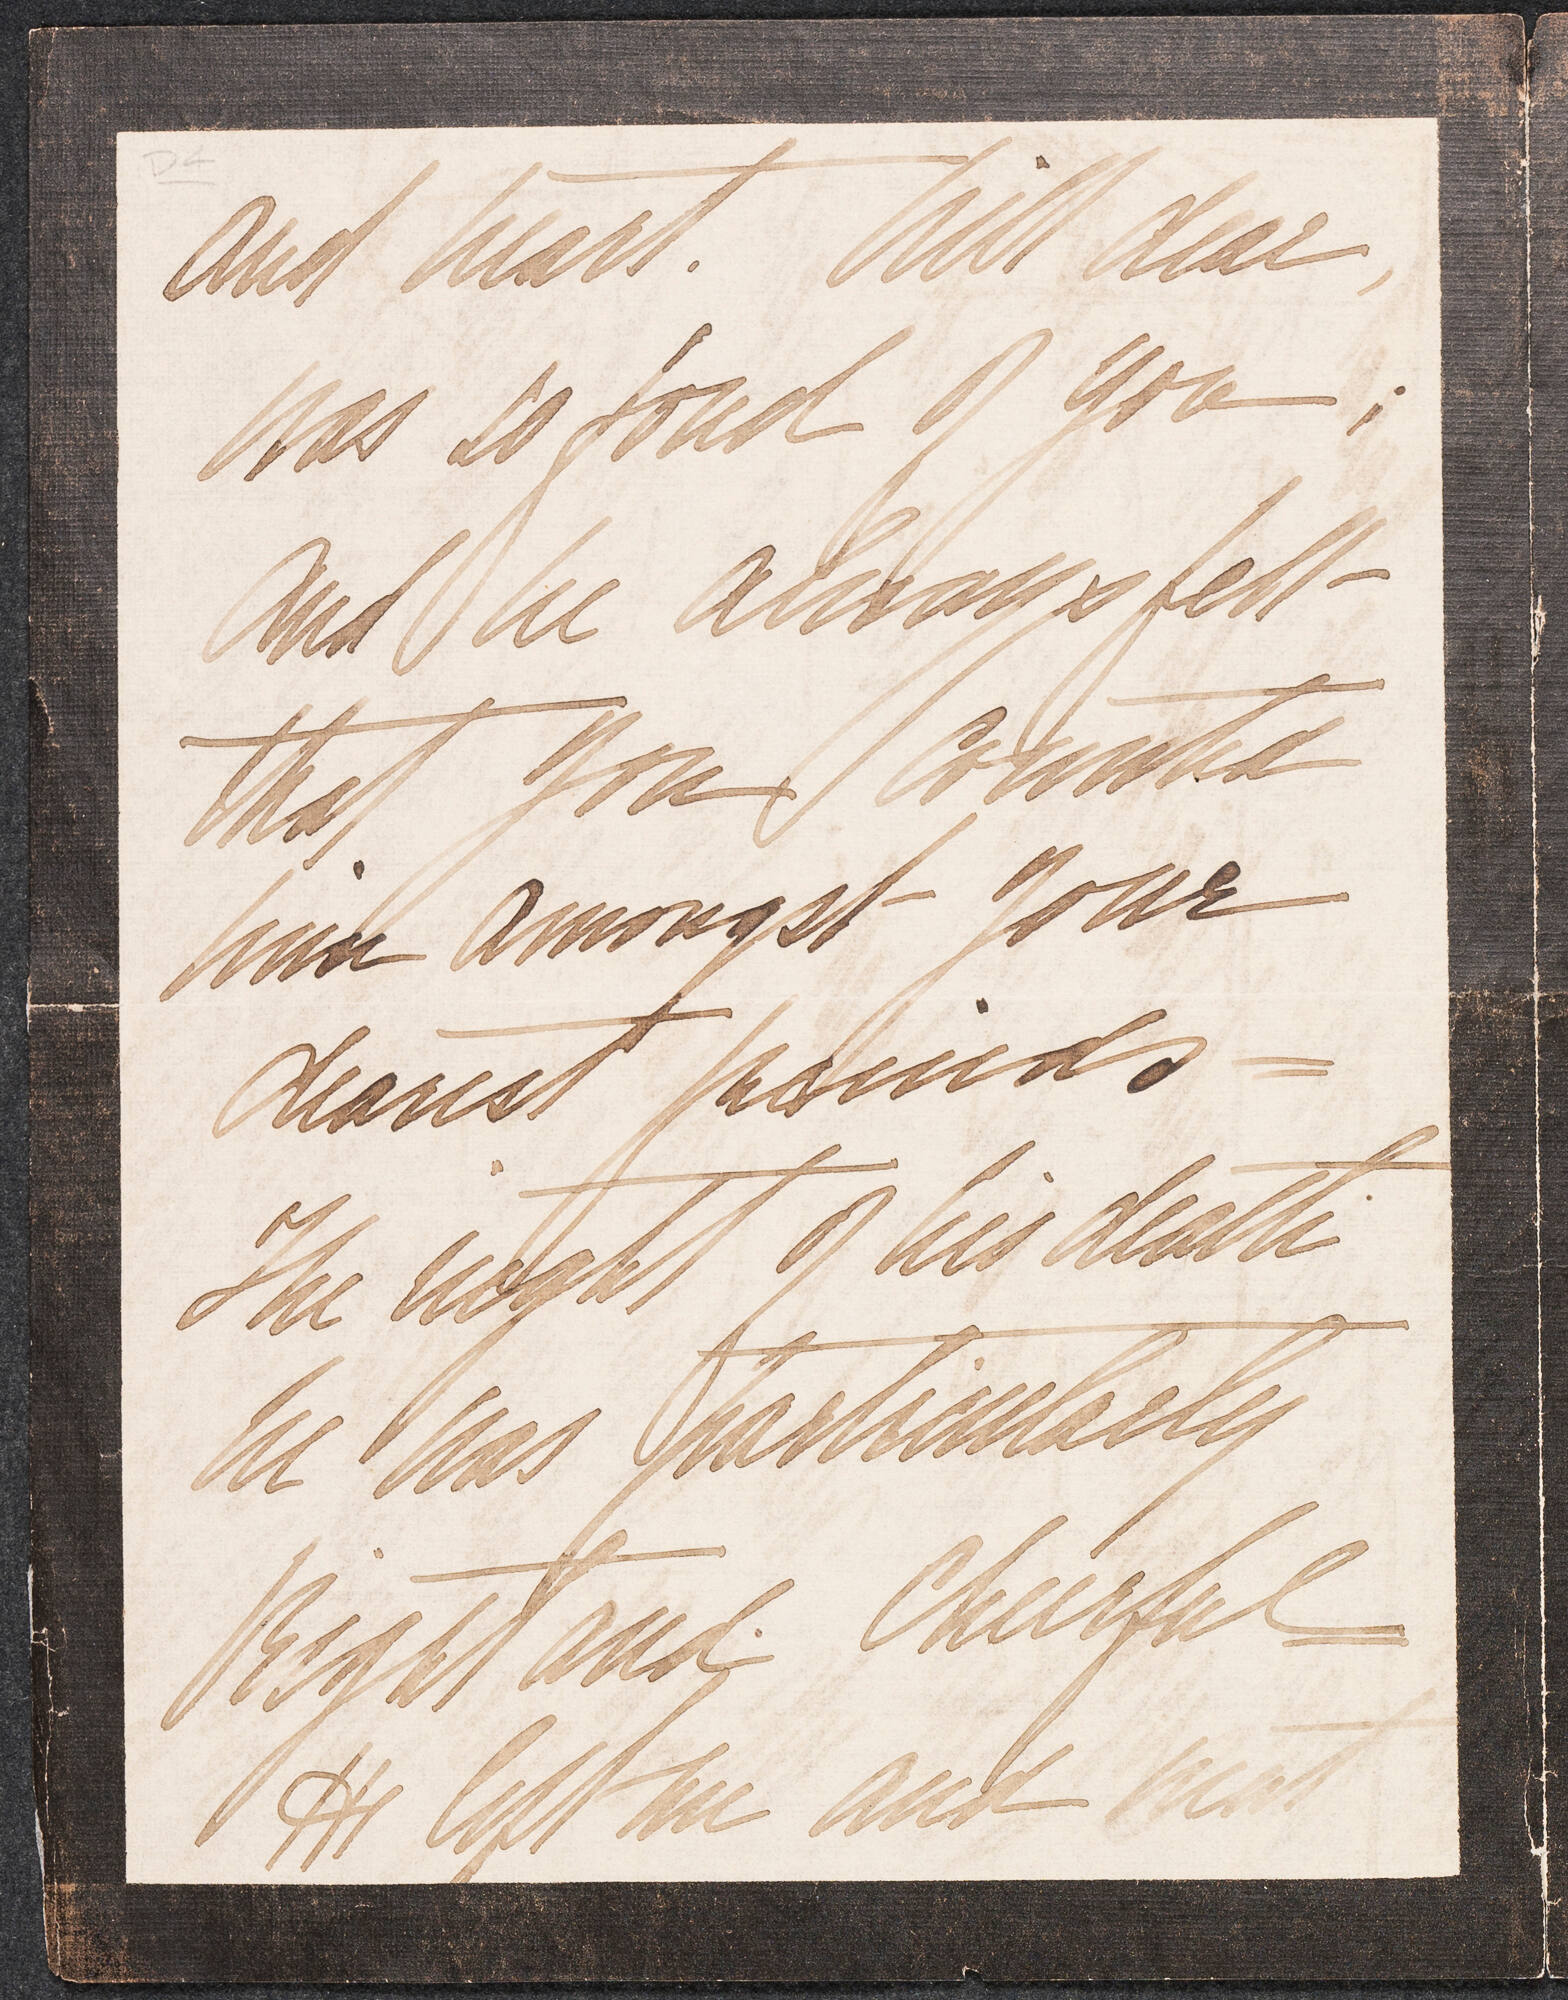 D4
and heart. Will dear,
was so fond of you;
and he always felt
that you counted
him amongst your
dearest friends =
The night of his death
he was particularly
bright and cheerful
He left me and went